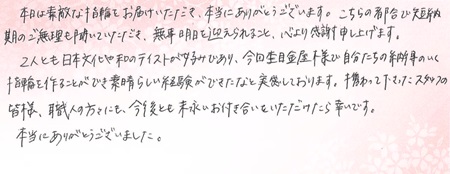 本日は素敵な指輪をお届けいただき、本当にありがとうございます。こちらの都合で短納
期のご無理も聴いていただき、無事明日を迎えられること、心より感謝申し上げます。
2人とも日本文化や和のテイストが好みであり、今回杢目金屋様で自分たちの納得のいく
指輪を作ることができ素晴らしい経験ができたなと実感しております。携わって下さったスタッフの
皆様、職人の方々にも、今後とも末永いお付き合いをいただけたら幸いです。
本当にありがとうございました。